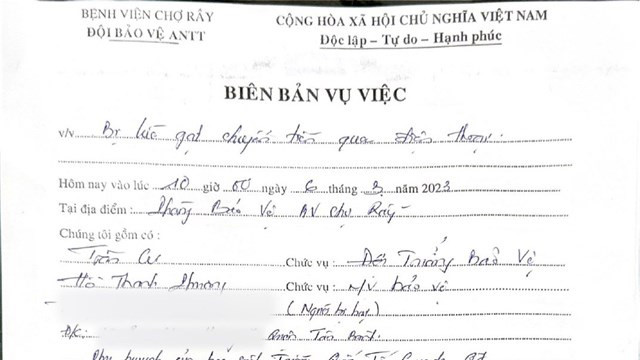 BỆNH VIỆN CHỢ RẪY
ĐỘI BẢO VỆ ANTT
CỘNG HÒA XÃ HỘI CHỦ NGHĨA VIỆT NAM
Độc lập – Tự do – Hạnh phúc
BIÊN BẢN VỤ VIỆC
V/v Bị lừa gạt chuyển tiền qua điện thoại
Hôm nay vào lúc 10 giờ 00 ngày 6 tháng 3 năm 2023
Tại địa điểm : Phòng Bảo Vệ BV Chợ Rẫy
Chúng tôi gồm có :
Trần Chức vụ : Đội Trưởng Bảo Vệ
Hồ Thanh Chức vụ : N/V bảo vệ
(Người bị hại)
ĐC: Tân
Phụ huynh của